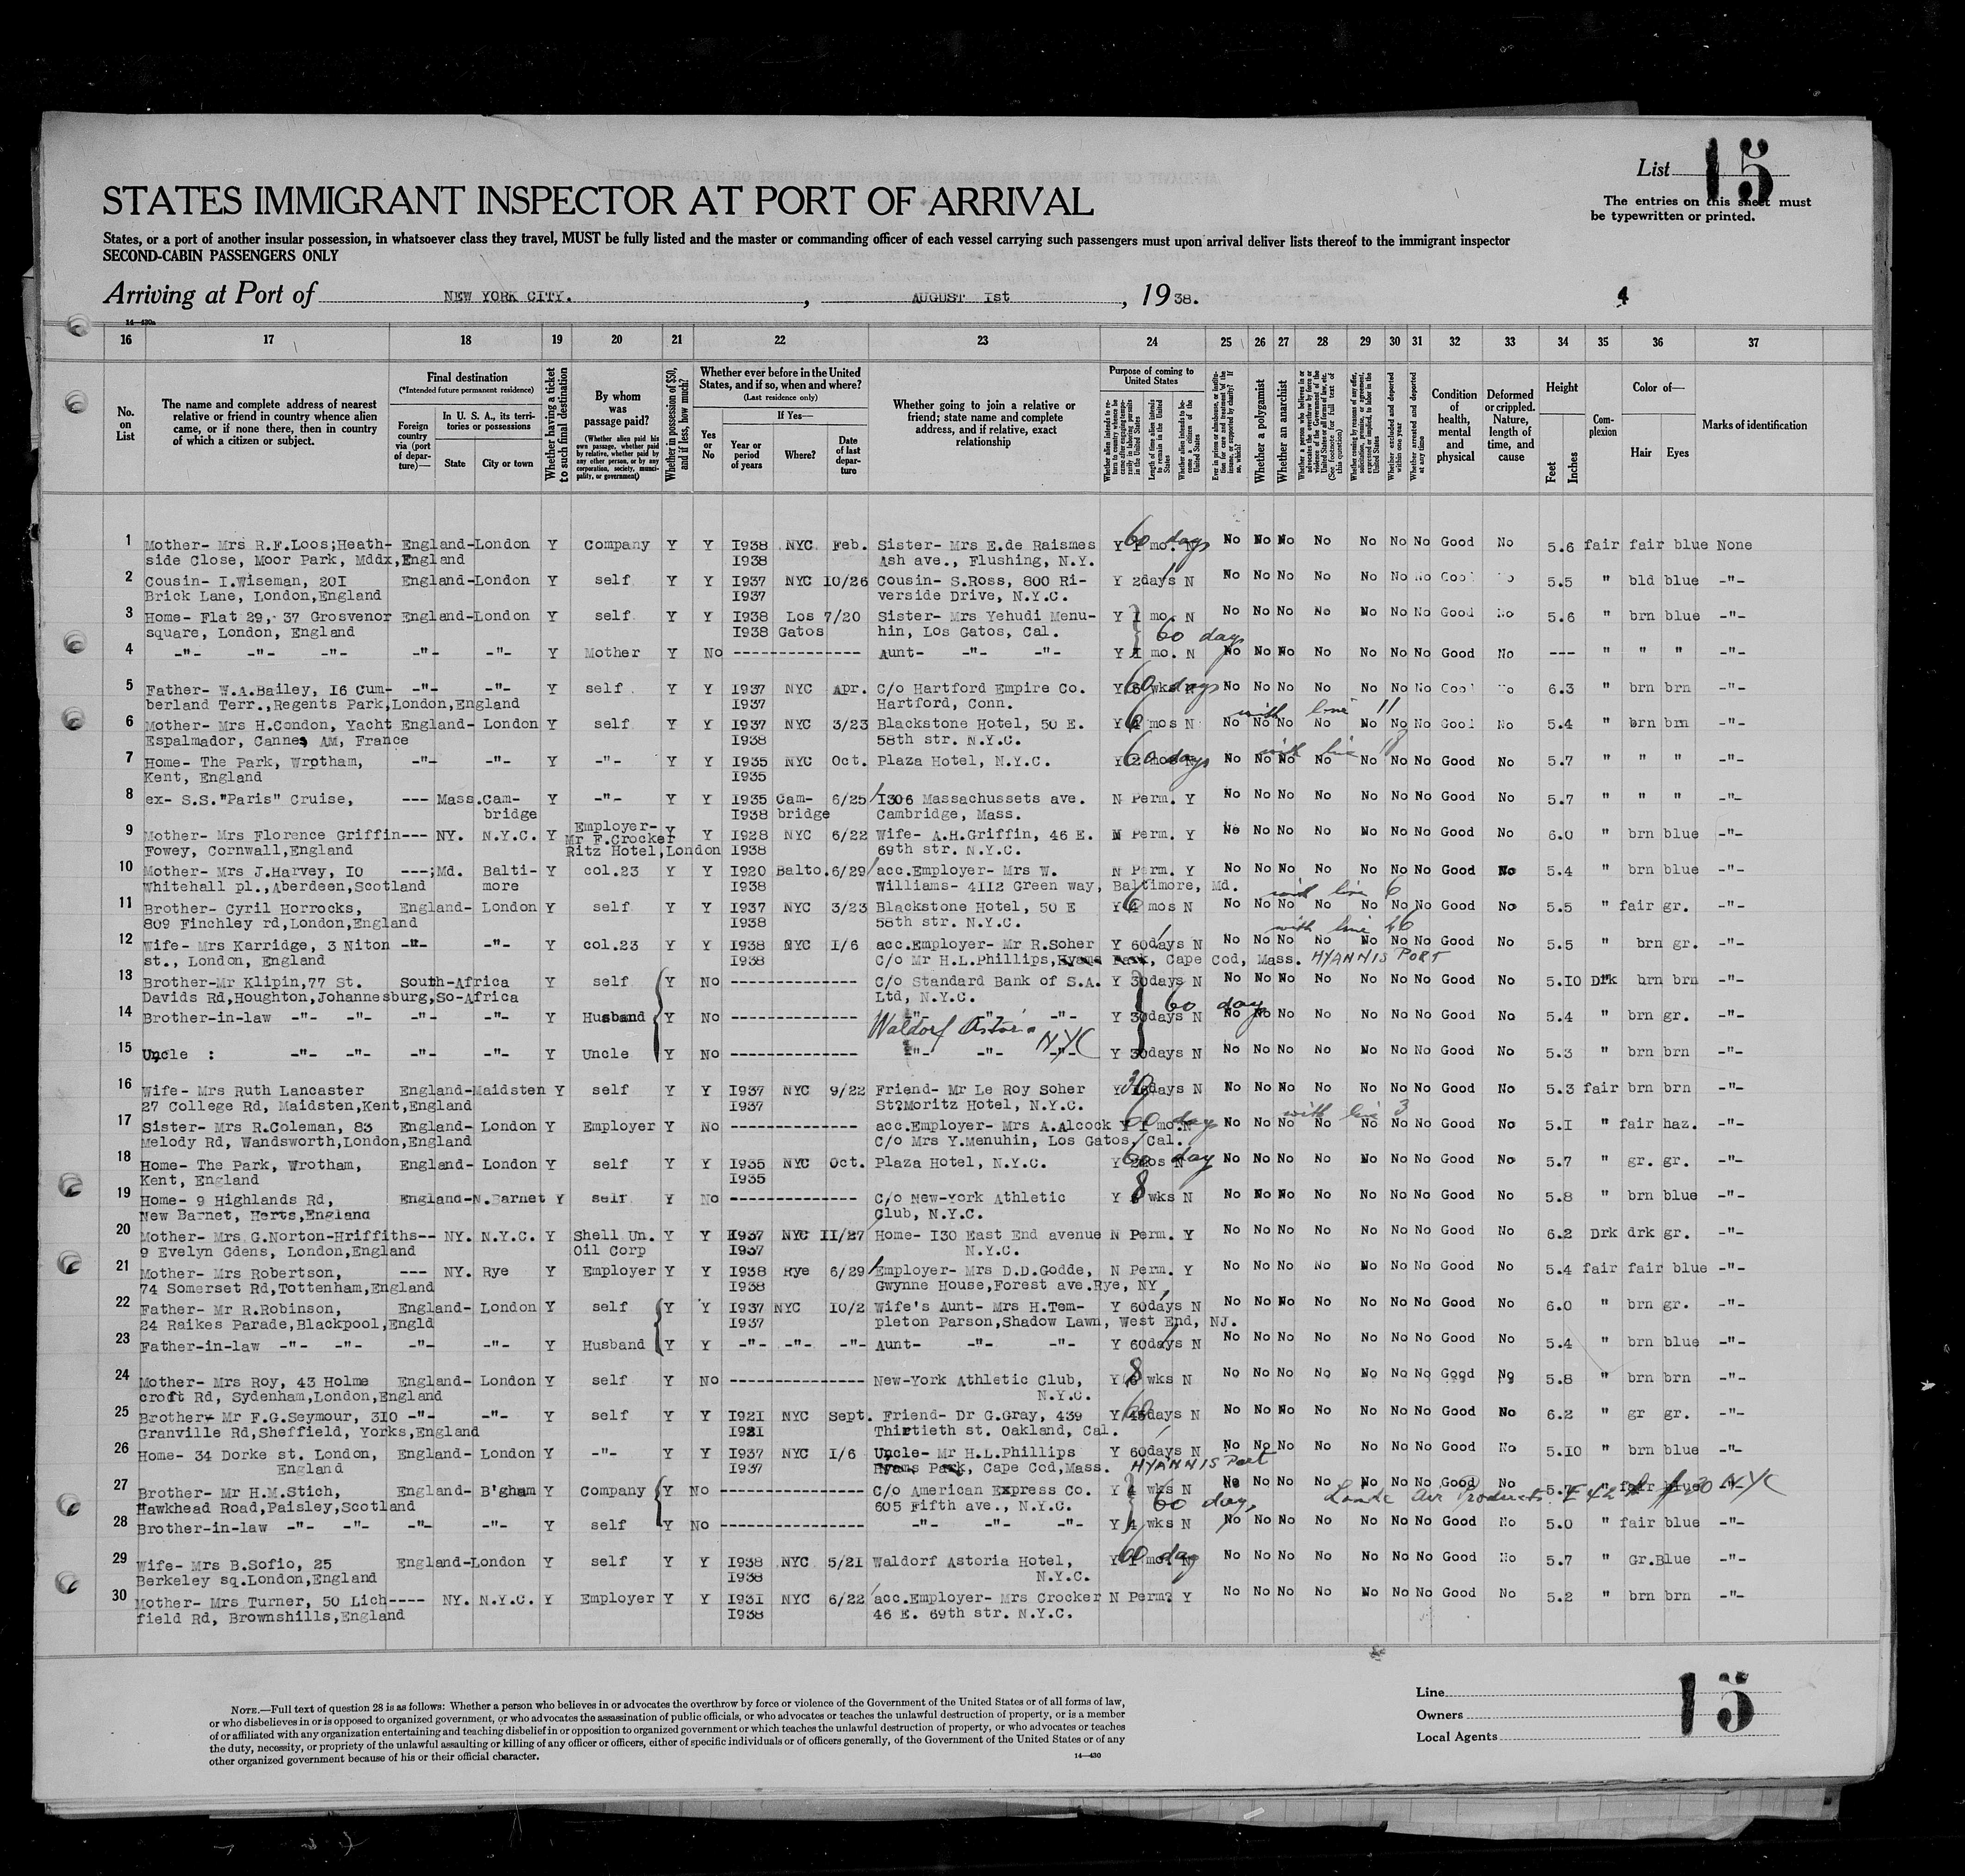 List 15
The entries on this sheet must
be typewritten or printed.
STATES IMMIGRANT INSPECTOR AT PORT OF ARRIVAL
States, or a port of another insular possession, in whatsoever class they travel, MUST be fully listed and the master or commanding officer of each vessel carrying such passengers must upon arrival deliver lists thereof to the immigrant inspector
SECOND-CABIN PASSENGERS ONLY
Arriving at Port of NEW YORK CITY. , AUGUST Ist , 1938.
4
14—430a
16 17 18 19 20 21 22 23 24 25 26 27 28 29 30 31 32 33 34 35 36 37
No. on List
The name and complete address of nearest relative or friend in country whence alien came, or if none there, then in country of which a citizen or subject.
Final destination
(*Intended future permanent residence)
Foreign country via (port of departure)—
In U. S. A., its territories or possessions
State City or town
Whether having a ticket to such final destination
By whom was passage paid?
(Whether alien paid his own passage, whether paid by relative, whether paid by any other person, or by any corporation, society, municipality, or government)
Whether in possession of $50, and if less, how much?
Whether ever before in the United States, and if so, when and where?
(Last residence only)
Yes or No
If Yes—
Year or period of years Where? Date of last departure
Whether going to join a relative or friend; state name and complete address, and if relative, exact relationship
Purpose of coming to United States
Length of time alien intends to remain in the United States
Whether a polygamist
Whether an anarchist
Whether excluded and deported within one year
Whether arrested and deported at any time
Condition of health, mental and physical
Deformed or crippled. Nature, length of time, and cause
Height
Feet Inches
Complexion
Color of—
Hair Eyes
Marks of identification
1 Mother- Mrs R.F.Loos;Heath- England-London Y Company Y Y I938 NYC Feb. Sister- Mrs E.de Raismes Y 60 days No No No No No No No Good No 5.6 fair fair blue None
side Close, Moor Park, Mddx,England I938 Ash ave., Flushing, N.Y.
2 Cousin- I.Wiseman, 20I England-London Y self Y Y I937 NYC I0/26 Cousin- S.Ross, 800 Ri- Y 2days N No No No No No No No Good No 5.5 " bld blue -"-
Brick Lane, London,England I937 verside Drive, N.Y.C.
3 Home- Flat 29, 37 Grosvenor England-London Y self Y Y I938 Los 7/20 Sister- Mrs Yehudi Menu- Y I mo. N No No No No No No No Good No 5.6 " brn blue -"-
square, London, England I938 Gatos hin, Los Gatos, Cal. 60 days
4 -"- -"- -"- -"- -"- Y Mother Y No -------------- Aunt- -"- -"- Y I mo. N No No No No No No No Good No --- " " " -"-
5 Father- W.A.Bailey, I6 Cum- -"- -"- Y self Y Y I937 NYC Apr. C/o Hartford Empire Co. Y 60 days No No No No No No No Good No 6.3 " brn brn -"-
berland Terr.,Regents Park,London,England I937 Hartford, Conn. with line 11
6 Mother- Mrs H.Condon, Yacht England- London Y self Y Y I937 NYC 3/23 Blackstone Hotel, 50 E. Y 6 mos N No No No No No No No Good No 5.4 " brn brn -"-
Espalmador, Cannes AM, France I938 58th str. N.Y.C. with line 18
7 Home- The Park, Wrotham, -"- -"- Y -"- Y Y I935 NYC Oct. Plaza Hotel, N.Y.C. Y 60 days No No No No No No No Good No 5.7 " " " -"-
Kent, England I935
8 ex- S.S."Paris" Cruise, --- Mass.Cam- Y -"- Y Y I935 Cam- 6/25 I306 Massachussets ave. N Perm. Y No No No No No No No Good No 5.7 " " " -"-
bridge I938 bridge Cambridge, Mass.
9 Mother- Mrs Florence Griffin--- NY. N.Y.C. Y Employer- Y Y I928 NYC 6/22 Wife- A.H.Griffin, 46 E. N Perm. Y No No No No No No No Good No 6.0 " brn blue -"-
Fowey, Cornwall,England Mr F.Crocker Ritz Hotel,London I938 69th str. N.Y.C.
10 Mother- Mrs J.Harvey, I0 ---;Md. Balti- Y col.23 Y Y I920 Balto.6/29 acc.Employer- Mrs W. N Perm. Y No No No No No No No Good No 5.4 " brn blue -"-
Whitehall pl.,Aberdeen,Scotland more I938 Williams- 4II2 Green way, Baltimore, Md. with line 6
11 Brother- Cyril Horrocks, England- London Y self Y Y I937 NYC 3/23 Blackstone Hotel, 50 E Y 6 mos N No No No No No No No Good No 5.5 " fair gr. -"-
809 Finchley rd,London,England I938 58th str. N.Y.C. with line 26
12 Wife- Mrs Karridge, 3 Niton -"- -"- Y col.23 Y Y I938 NYC I/6 acc.Employer- Mr R.Soher Y 60days N No No No No No No No Good No 5.5 " brn gr. -"-
st., London, England I938 C/o Mr H.L.Phillips,Hyams Park, Cape Cod, Mass. HYANNIS PORT
13 Brother-Mr Klipin,77 St. South-Africa Y self Y No -------------- C/o Standard Bank of S.A. Y 30days N No No No No No No No Good No 5.I0 Drk brn brn -"-
Davids Rd,Houghton,Johannesburg,So-Africa Ltd, N.Y.C. 60 days
14 Brother-in-law -"- -"- -"- -"- Y Husband Y No -------------- -"- -"- -"- Y 30days N No No No No No No No Good No 5.4 " brn gr. -"-
Waldorf Astoria NYC
15 Uncle : -"- -"- -"- -"- Y Uncle Y No -------------- -"- -"- -"- Y 30days N No No No No No No No Good No 5.3 " brn brn -"-
16 Wife- Mrs Ruth Lancaster England-Maidsten Y self Y Y I937 NYC 9/22 Friend- Mr Le Roy Soher Y 30 days N No No No No No No No Good No 5.3 fair brn brn -"-
27 College Rd, Maidsten,Kent,England I937 St?Moritz Hotel, N.Y.C. with line 3
17 Sister- Mrs R.Coleman, 83 England- London Y Employer Y No -------------- acc.Employer- Mrs A.Alcock Y 60 days No No No No No No No Good No 5.I " fair haz. -"-
Melody Rd, Wandsworth,London,England C/o Mrs Y.Menuhin, Los Gatos, Cal.
18 Home- The Park, Wrotham, England- London Y self Y Y I935 NYC Oct. Plaza Hotel, N.Y.C. Y 60 day No No No No No No No Good No 5.7 " gr. gr. -"-
Kent, England I935
19 Home- 9 Highlands Rd, England-N.Barnet Y self Y No -------------- C/o New-York Athletic Y 8 wks N No No No No No No No Good No 5.8 " brn blue -"-
New Barnet, Herts,England Club, N.Y.C.
20 Mother- Mrs G.Norton-Hriffiths-- NY. N.Y.C. Y Shell Un. Y Y I937 NYC II/27 Home- I30 East End avenue N Perm. Y No No No No No No No Good No 6.2 Drk drk gr. -"-
9 Evelyn Gdens, London,England Oil Corp I937 N.Y.C.
21 Mother- Mrs Robertson, --- NY. Rye Y Employer Y Y I938 Rye 6/29 Employer- Mrs D.D.Godde, N Perm. Y No No No No No No No Good No 5.4 fair fair blue -"-
74 Somerset Rd,Tottenham,England I938 Gwynne House,Forest ave.Rye, NY
22 Father- Mr R.Robinson, England- London Y self Y Y I937 NYC I0/2 Wife's Aunt- Mrs H.Tem- Y 60days N No No No No No No No Good No 6.0 " brn gr. -"-
24 Raikes Parade,Blackpool,Engld I937 pleton Parson,Shadow Lawn, West End, NJ.
23 Father-in-law -"- -"- -"- -"- Y Husband Y Y -"- -"- -"- Aunt- -"- -"- Y 60days N No No No No No No No Good No 5.4 " brn blue -"-
24 Mother- Mrs Roy, 43 Holme England- London Y self Y No -------------- New-York Athletic Club, Y 8 wks N No No No No No No No Good No 5.8 " brn brn -"-
croft Rd, Sydenham,London,England N.Y.C.
25 Brother- Mr F.G.Seymour, 3I0 -"- -"- Y self Y Y I92I NYC Sept. Friend- Dr G.Gray, 439 Y 60 days N No No No No No No No Good No 6.2 " gr gr. -"-
Granville Rd,Sheffield, Yorks,England I92I Thirtieth st. Oakland, Cal.
26 Home- 34 Dorke st. London, England- London Y -"- Y Y I937 NYC I/6 Uncle- Mr H.L.Phillips Y 60days N No No No No No No No Good No 5.I0 " brn blue -"-
England I937 Hyams Park, Cape Cod,Mass. HYANNIS Port
27 Brother- Mr H.M.Stich, England- B'gham Y Company Y No -------------- C/o American Express Co. Y 4 wks N No No No No No No No Good No 5.7 " fair blue -"-
Hawkhead Road,Paisley,Scotland 605 Fifth ave., N.Y.C. 60 days Linde Air Products E 42 NYC
28 Brother-in-law -"- -"- -"- -"- Y self Y No -------------- -"- -"- -"- Y 4 wks N No No No No No No No Good No 5.0 " fair blue -"-
29 Wife- Mrs B.Sofio, 25 England-London Y self Y Y I938 NYC 5/21 Waldorf Astoria Hotel, Y 60 day No No No No No No No Good No 5.7 " Gr.Blue -"-
Berkeley sq.London,England I938 N.Y.C.
30 Mother- Mrs Turner, 50 Lich---- NY. N.Y.C. Y Employer Y Y I93I NYC 6/22 acc.Employer- Mrs Crocker N Perm? Y No No No No No No No Good No 5.2 " brn brn -"-
field Rd, Brownshills,England I938 46 E. 69th str. N.Y.C.
NOTE.—Full text of question 28 is as follows: Whether a person who believes in or advocates the overthrow by force or violence of the Government of the United States or of all forms of law,
or who disbelieves in or is opposed to organized government, or who advocates the assassination of public officials, or who advocates or teaches the unlawful destruction of property, or is a member
of or affiliated with any organization entertaining and teaching disbelief in or opposition to organized government or which teaches the unlawful destruction of property, or who advocates or teaches
the duty, necessity, or propriety of the unlawful assaulting or killing of any officer or officers, either of specific individuals or of officers generally, of the Government of the United States or of any
other organized government because of his or their official character.
14—430
Line
Owners
Local Agents
15